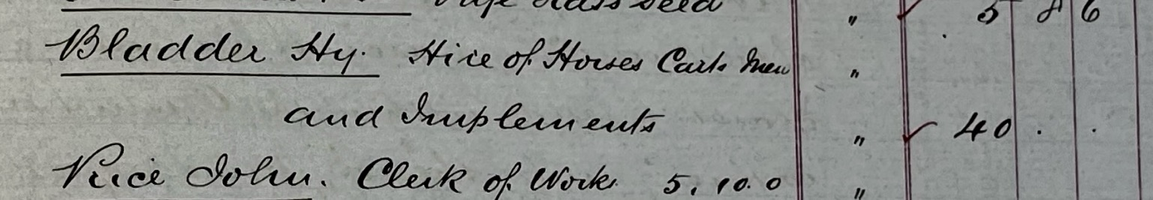 Grass Seed " ✓ 5 8 6
Bladder Hy. Hire of Horses Carts Men "
and Implements " ✓ 40 . .
Price John. Clerk of Works 5. 10. 0 "